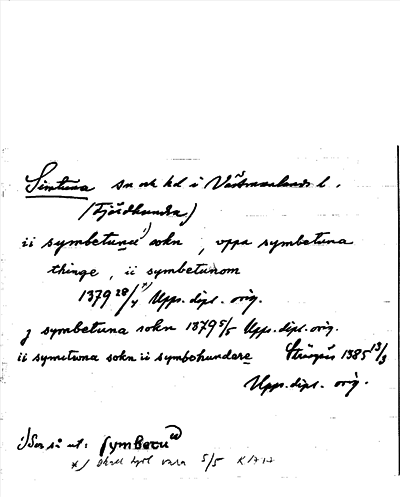 Simtuna sn ok hd i Västmanlands l.
(Fjärdhundra)
ii symbetunu 1) sokn, uppa symbetuna
thinge, ii symbetunom
1379 28/4 x) Upps. dipl. orig.
j symbetuna sokn 1379 5/5 Upps. dipl. orig.
ii symituna sokn ii symbohundare 1385 13/3
Upps. dipl. orig.
1) Ser så ut: symbetu
x) skall vara 5/5